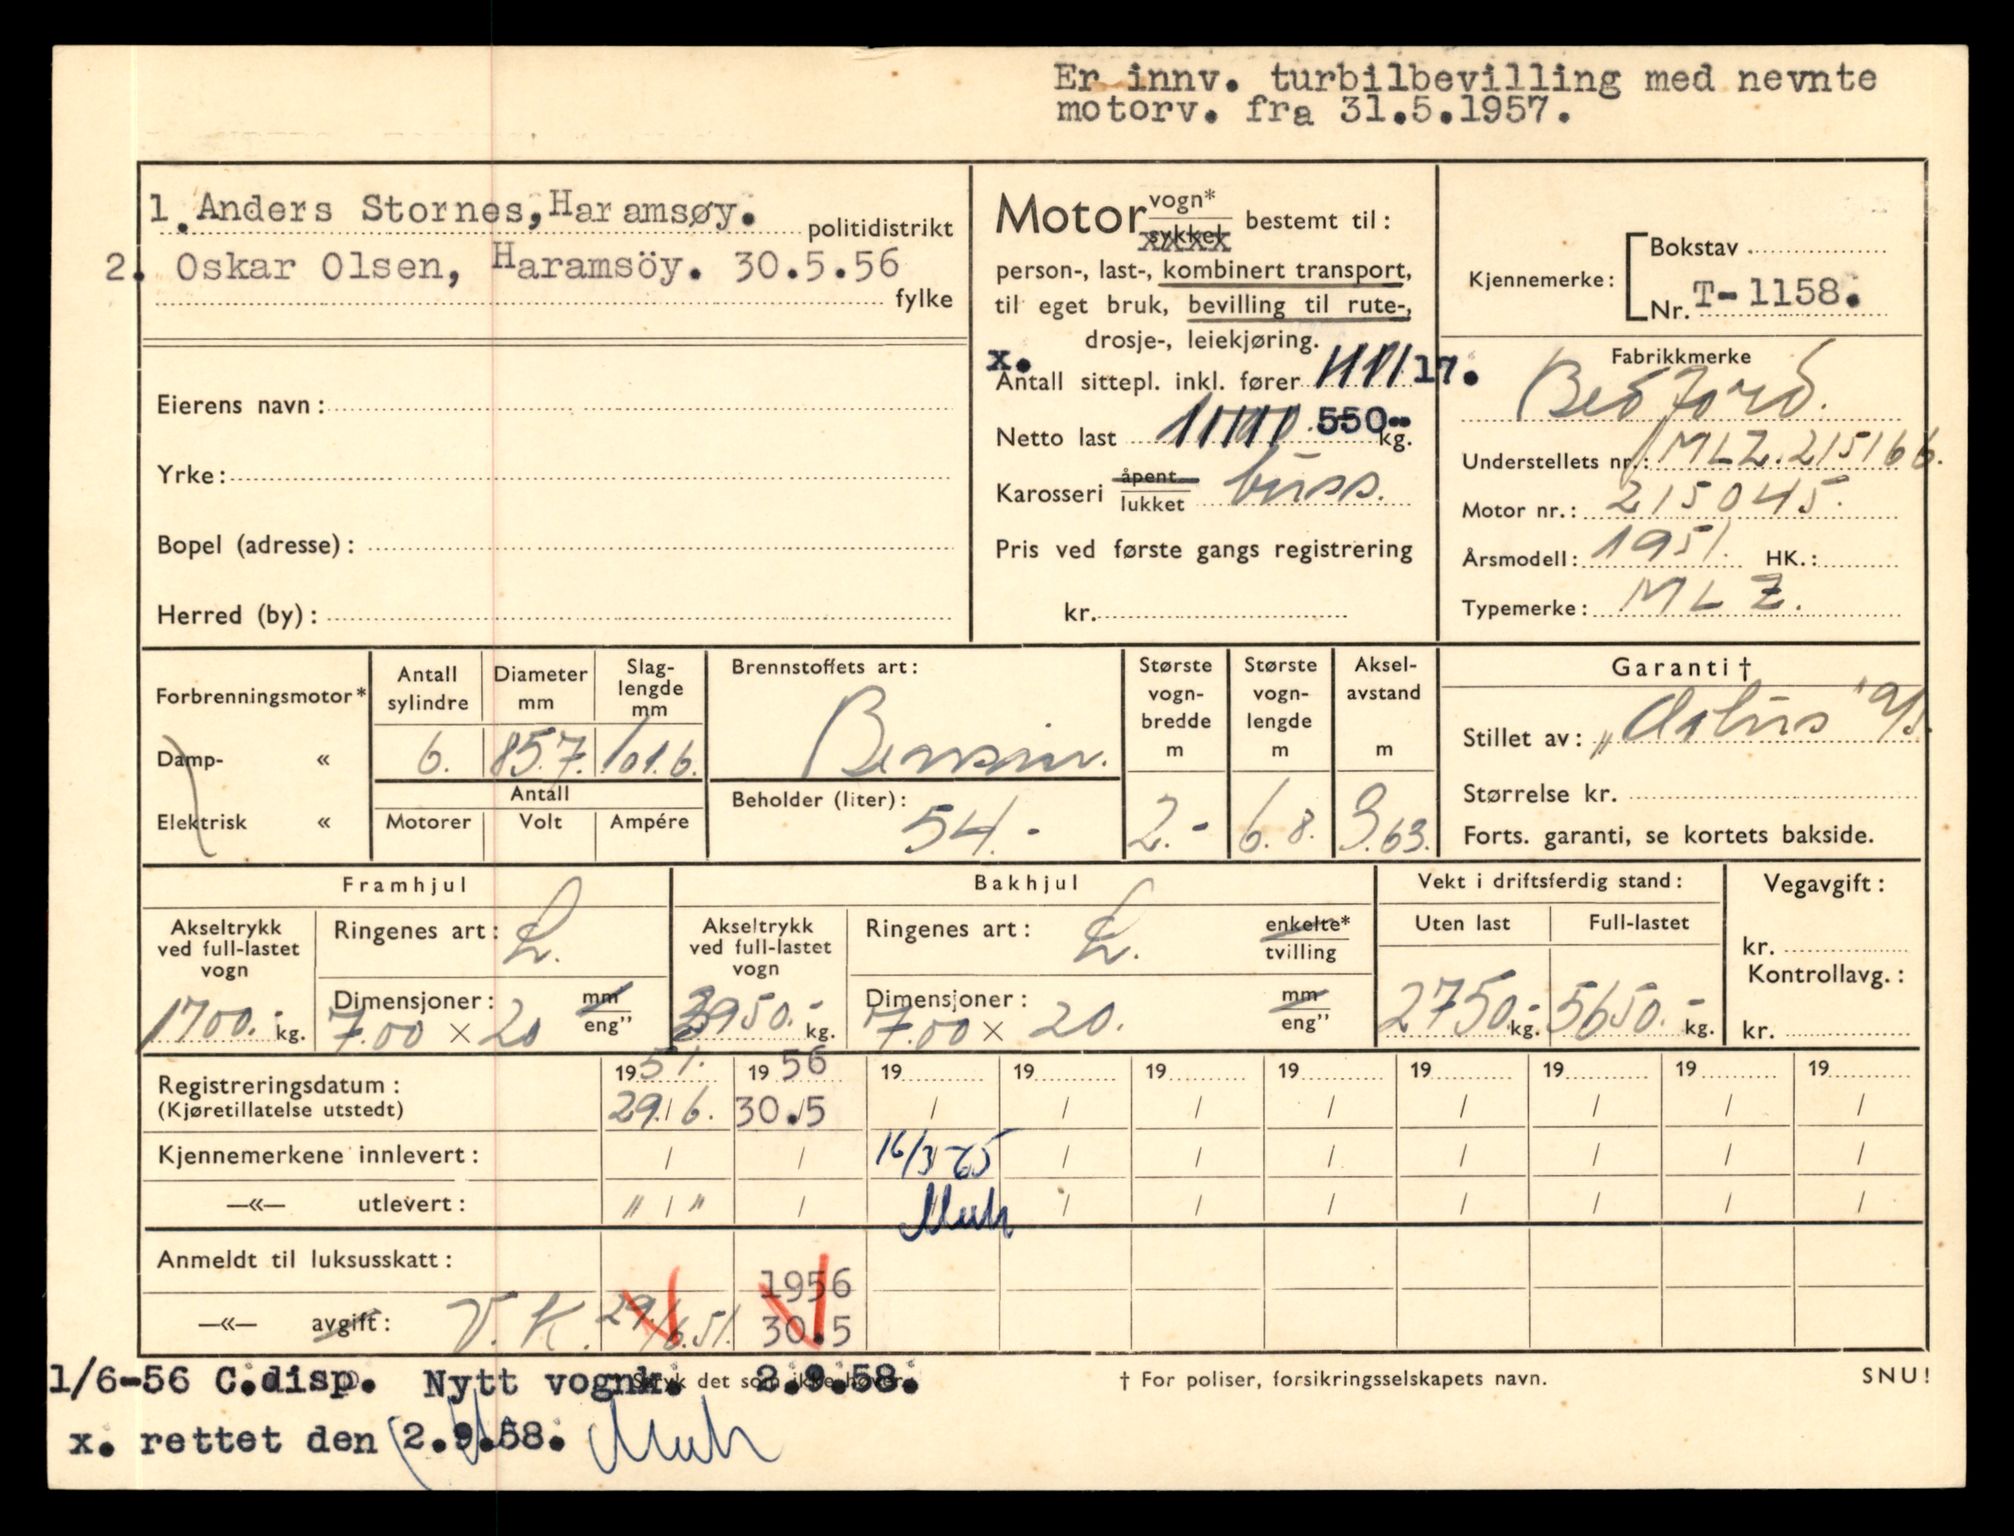 Er innv. turbilbevilling med nevnte
motorv. fra 31.5.1957.
1. Anders Stornes, Haramsøy.
politidistrikt
2. Oskar Olsen, Haramsöy. 30.5.56
fylke
Eierens navn:
Yrke:
Bopel (adresse):
Herred (by):
Motor vogn*
sykkel bestemt til:
person-, last-, kombinert transport,
til eget bruk, bevilling til rute-,
drosje-, leiekjøring.
x.
Antall sittepl. inkl. fører 17.
Netto last 550-- kg.
Karosseri åpent
lukket buss.
Pris ved første gangs registrering
kr.
Kjennemerke: Bokstav
Nr. T-1158.
Fabrikkmerke
Bedford.
Understellets nr.: MLZ.215166.
Motor nr.: 215045.
Årsmodell: 1951. HK.:
Typemerke: MLZ.
Forbrenningsmotor*
Damp- «
Elektrisk «
Antall sylindre Diameter mm Slag-lengde mm
6. 85.7. 101.6.
Antall
Motorer Volt Ampére
Brennstoffets art:
Bensin.
Beholder (liter):
54.-
Største vogn-bredde m Største vogn-lengde m Aksel-avstand m
2.- 6.8. 3.63.
Garanti †
Stillet av:
Størrelse kr.
Forts. garanti, se kortets bakside.
Framhjul
Akseltrykk ved full-lastet vogn
1700.- kg.
Ringenes art: L.
Dimensjoner: mm
7.00 × 20 eng”
Bakhjul
Akseltrykk ved full-lastet vogn
3950.- kg.
Ringenes art: L. enkelte*
tvilling
Dimensjoner: mm
7.00 × 20. eng”
Vekt i driftsferdig stand:
Uten last Full-lastet
2750.- kg. 5650.- kg.
Vegavgift:
kr.
Kontrollavg.:
kr.
Registreringsdatum: 1951. 1956 19 19 19 19 19 19 19 19
(Kjøretillatelse utstedt) 29/6. 30.5 / / / / / / / /
Kjennemerkene innlevert: / / 16/3 65 / / / / / / /
—«— utlevert: " / " / / / / / / / /
Anmeldt til luksusskatt: 1956
—«— avgift: V.K. 29/6.51. 30.5
1/6-56 C.disp. Nytt vognk. 2.9.58.
Stryk det som ikke høver.
† For poliser, forsikringsselskapets navn.
SNU!
x. rettet den 2.9.58.